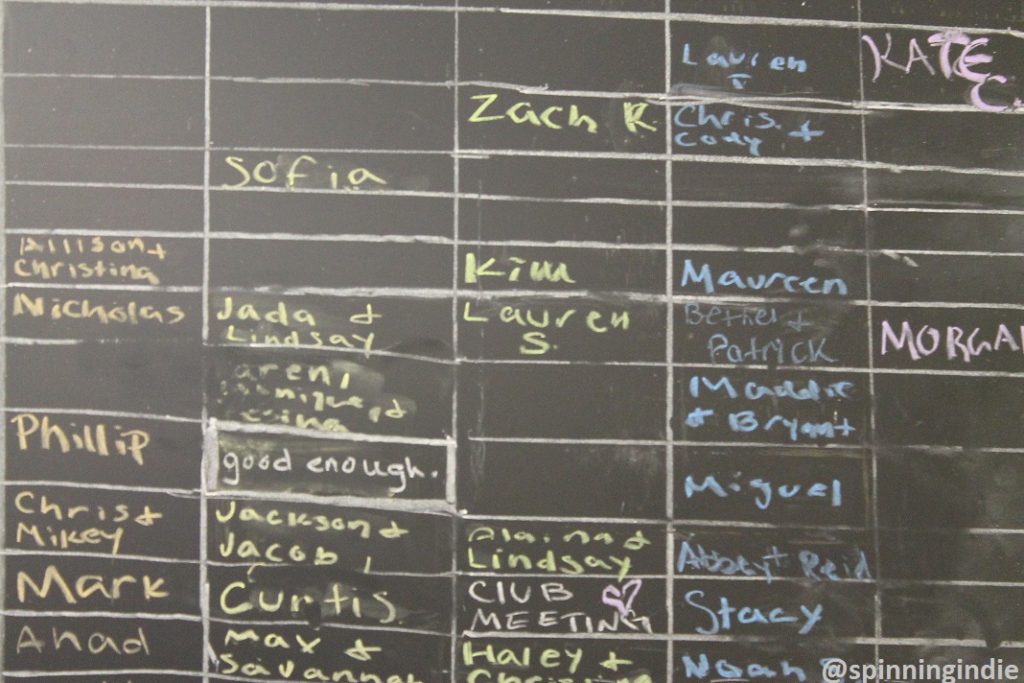 Lauren
T
KATE
C.
Zach R.
Chris +
Cody
Sofia
Allison +
Christina
Kim
Maureen
Nicholas
Jada &
Lindsay
Lauren
S.
Patryck
MORGA
Maddie
& Bryant
Phillip
good enough.
Miguel
Chris &
Mikey
Jackson &
Jacob
Alaina &
Lindsay
Abbey + Reid
Mark
Curtis
CLUB
MEETING
Stacy
Ahad
Max &
Savannah
Haley &
Christina
Noah
@spinningindie